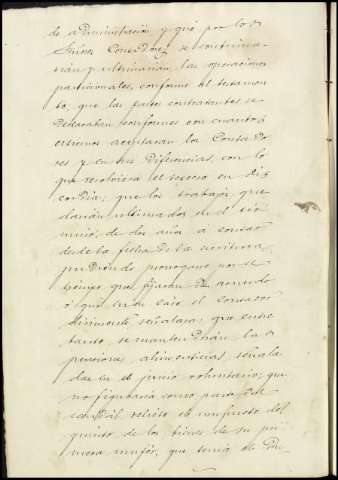 de administración y que por los
Señores Contadores se continua-
rían y ultimarían las operaciones
particionales, conforme al testamen-
to, que las partes contratantes se
declaraban conformes con cuantos
estremos aceptaran los Contado-
res y en sus diferencias, con lo
que resolviera el tercero en dis-
cordia; que los trabajos que
darían ultimados en el tér
mino de dos años a contar
desde la fecha de la escritura,
pudiendo prorrogarse por el
tiempo que fijaran de acuerdo
ó que en su caso el contador
dirimente señalase; que entre
tanto, se mantendrán las
pensiones alimenticias señala
das en el juicio voluntario; que
no figuraría como parte del
caudal relicto el usufructo del
quinto de los bienes de su pri
mera mujer, que tenía el Du-